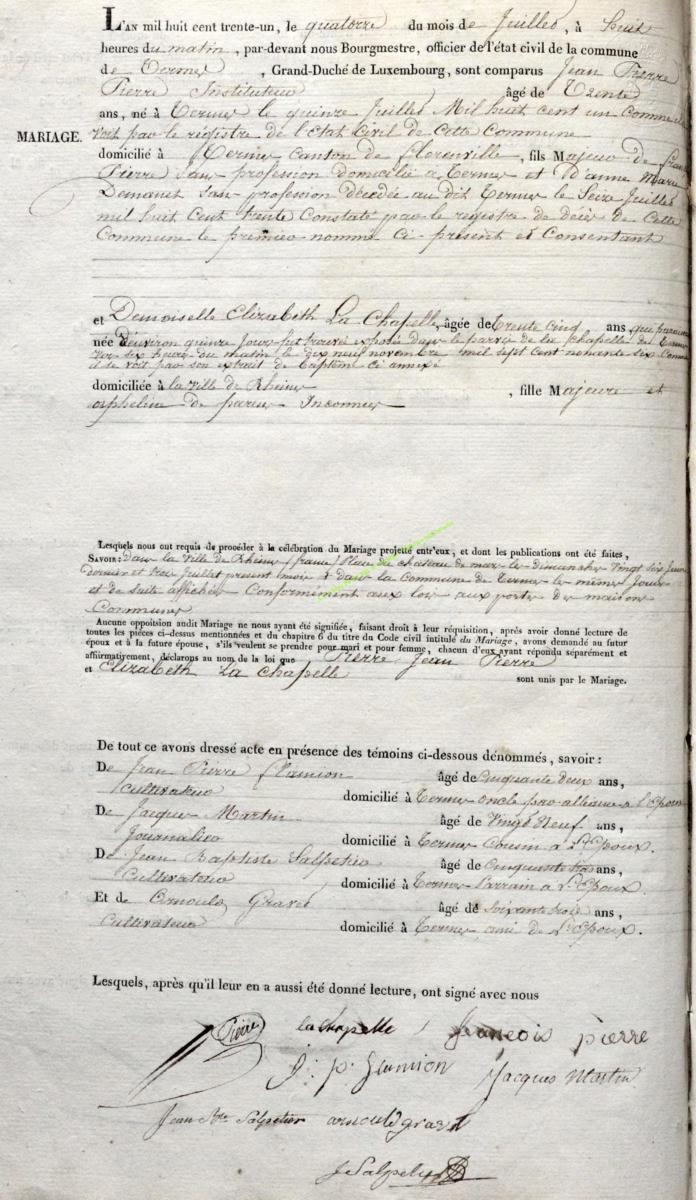 L'AN mil huit cent trente-un, le quatorze du mois de Juillet, à huit
heures du matin, par-devant nous Bourgmestre, officier de l'état civil de la commune
de Termes, Grand-Duché de Luxembourg, sont comparus Jean Pierre
Pierre Instituteur âgé de Trente
ans, né à Termes le quinze Juillet Mil huit cent un comme il se
MARIAGE.
voit par le registre de l'Etat Civil de Cette Commune
domicilié à Termes canton de florenville, fils Majeur de
Pierre sans profession domicilié à Termes et d'anne Marie
Demanet sans profession décedée au dit Termes le Seize Juillet
mil huit Cent trente Constaté par le registre de décès de Cette
Commune le premier nommé ci-présent et Consentant
et Demoiselle Elizabeth La Chapelle, âgée de trente cinq ans
née d'environ quinze Jours fut trouvée exposée dans le parvis de la chapelle de
vers six heures du matin le dix neuf novembre mil sept cent nonante six comme
il se voit par son extrait de baptême ci annexé
domiciliée à la Ville de Rheims, fille Majeure et
orpheline de parens Inconnus
Lesquels nous ont requis de procéder à la célébration du Mariage projetté entr'eux, et dont les publications ont été faites,
SAVOIR: dans la Ville de Rheims (france) Place du chateau de mars les dimanches Vingt six Juin
dernier et trois Juillet présent mois & dans la Commune de Termes les mêmes Jours
et de suite affichés Conformement aux lois aux portes des maisons
Communes
Aucune oppoitsion audit Mariage ne nous ayant été signifiée, faisant droit à leur réquisition, après avoir donné lecture de
toutes les pièces ci-dessus mentionnées et du chapitre 6 du titre du Code civil intitulé du Mariage, avons demandé au futur
époux et à la future épouse, s'ils veulent se prendre pour mari et pour femme, chacun d'eux ayant répondu séparément et
affirmativement, déclarons au nom de la loi que Pierre Jean Pierre
et Elizabeth La Chapelle sont unis par le Mariage.
De tout ce avons dressé acte en présence des témoins ci-dessous dénommés, savoir:
De Jean Pierre Flamion âgé de Cinquante deux ans,
Cultivateur domicilié à Termes oncle par alliance à l'Epoux
De Jacques Martin âgé de Vingt Neuf ans,
Journalier domicilié à Termes Cousin à l'Epoux.
De Jean Baptiste Salpetier âgé de Cinquante trois ans,
Cultivateur domicilié à Termes Parrain à l'Epoux.
Et de Arnould Gravet âgé de Soixante trois ans,
Cultivateur domicilié à Termes ami de l'Epoux.
Lesquels, après qu'il leur en a aussi été donné lecture, ont signé avec nous
Pierre lachapelle francois pierre
J. p. flamion Jacques Martin
Jean Bte Salpetier arnould gravet
J Salpetier